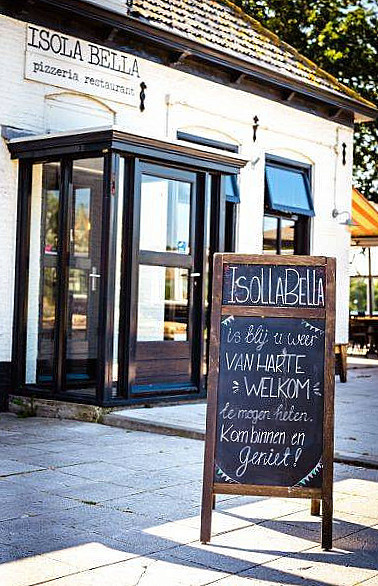 ISOLA BELLA
pizzeria restaurant
IsoLLABELLA
is blij u weer
VAN HARTE
WELKOM
te mogen heten.
Kom binnen en
geniet!